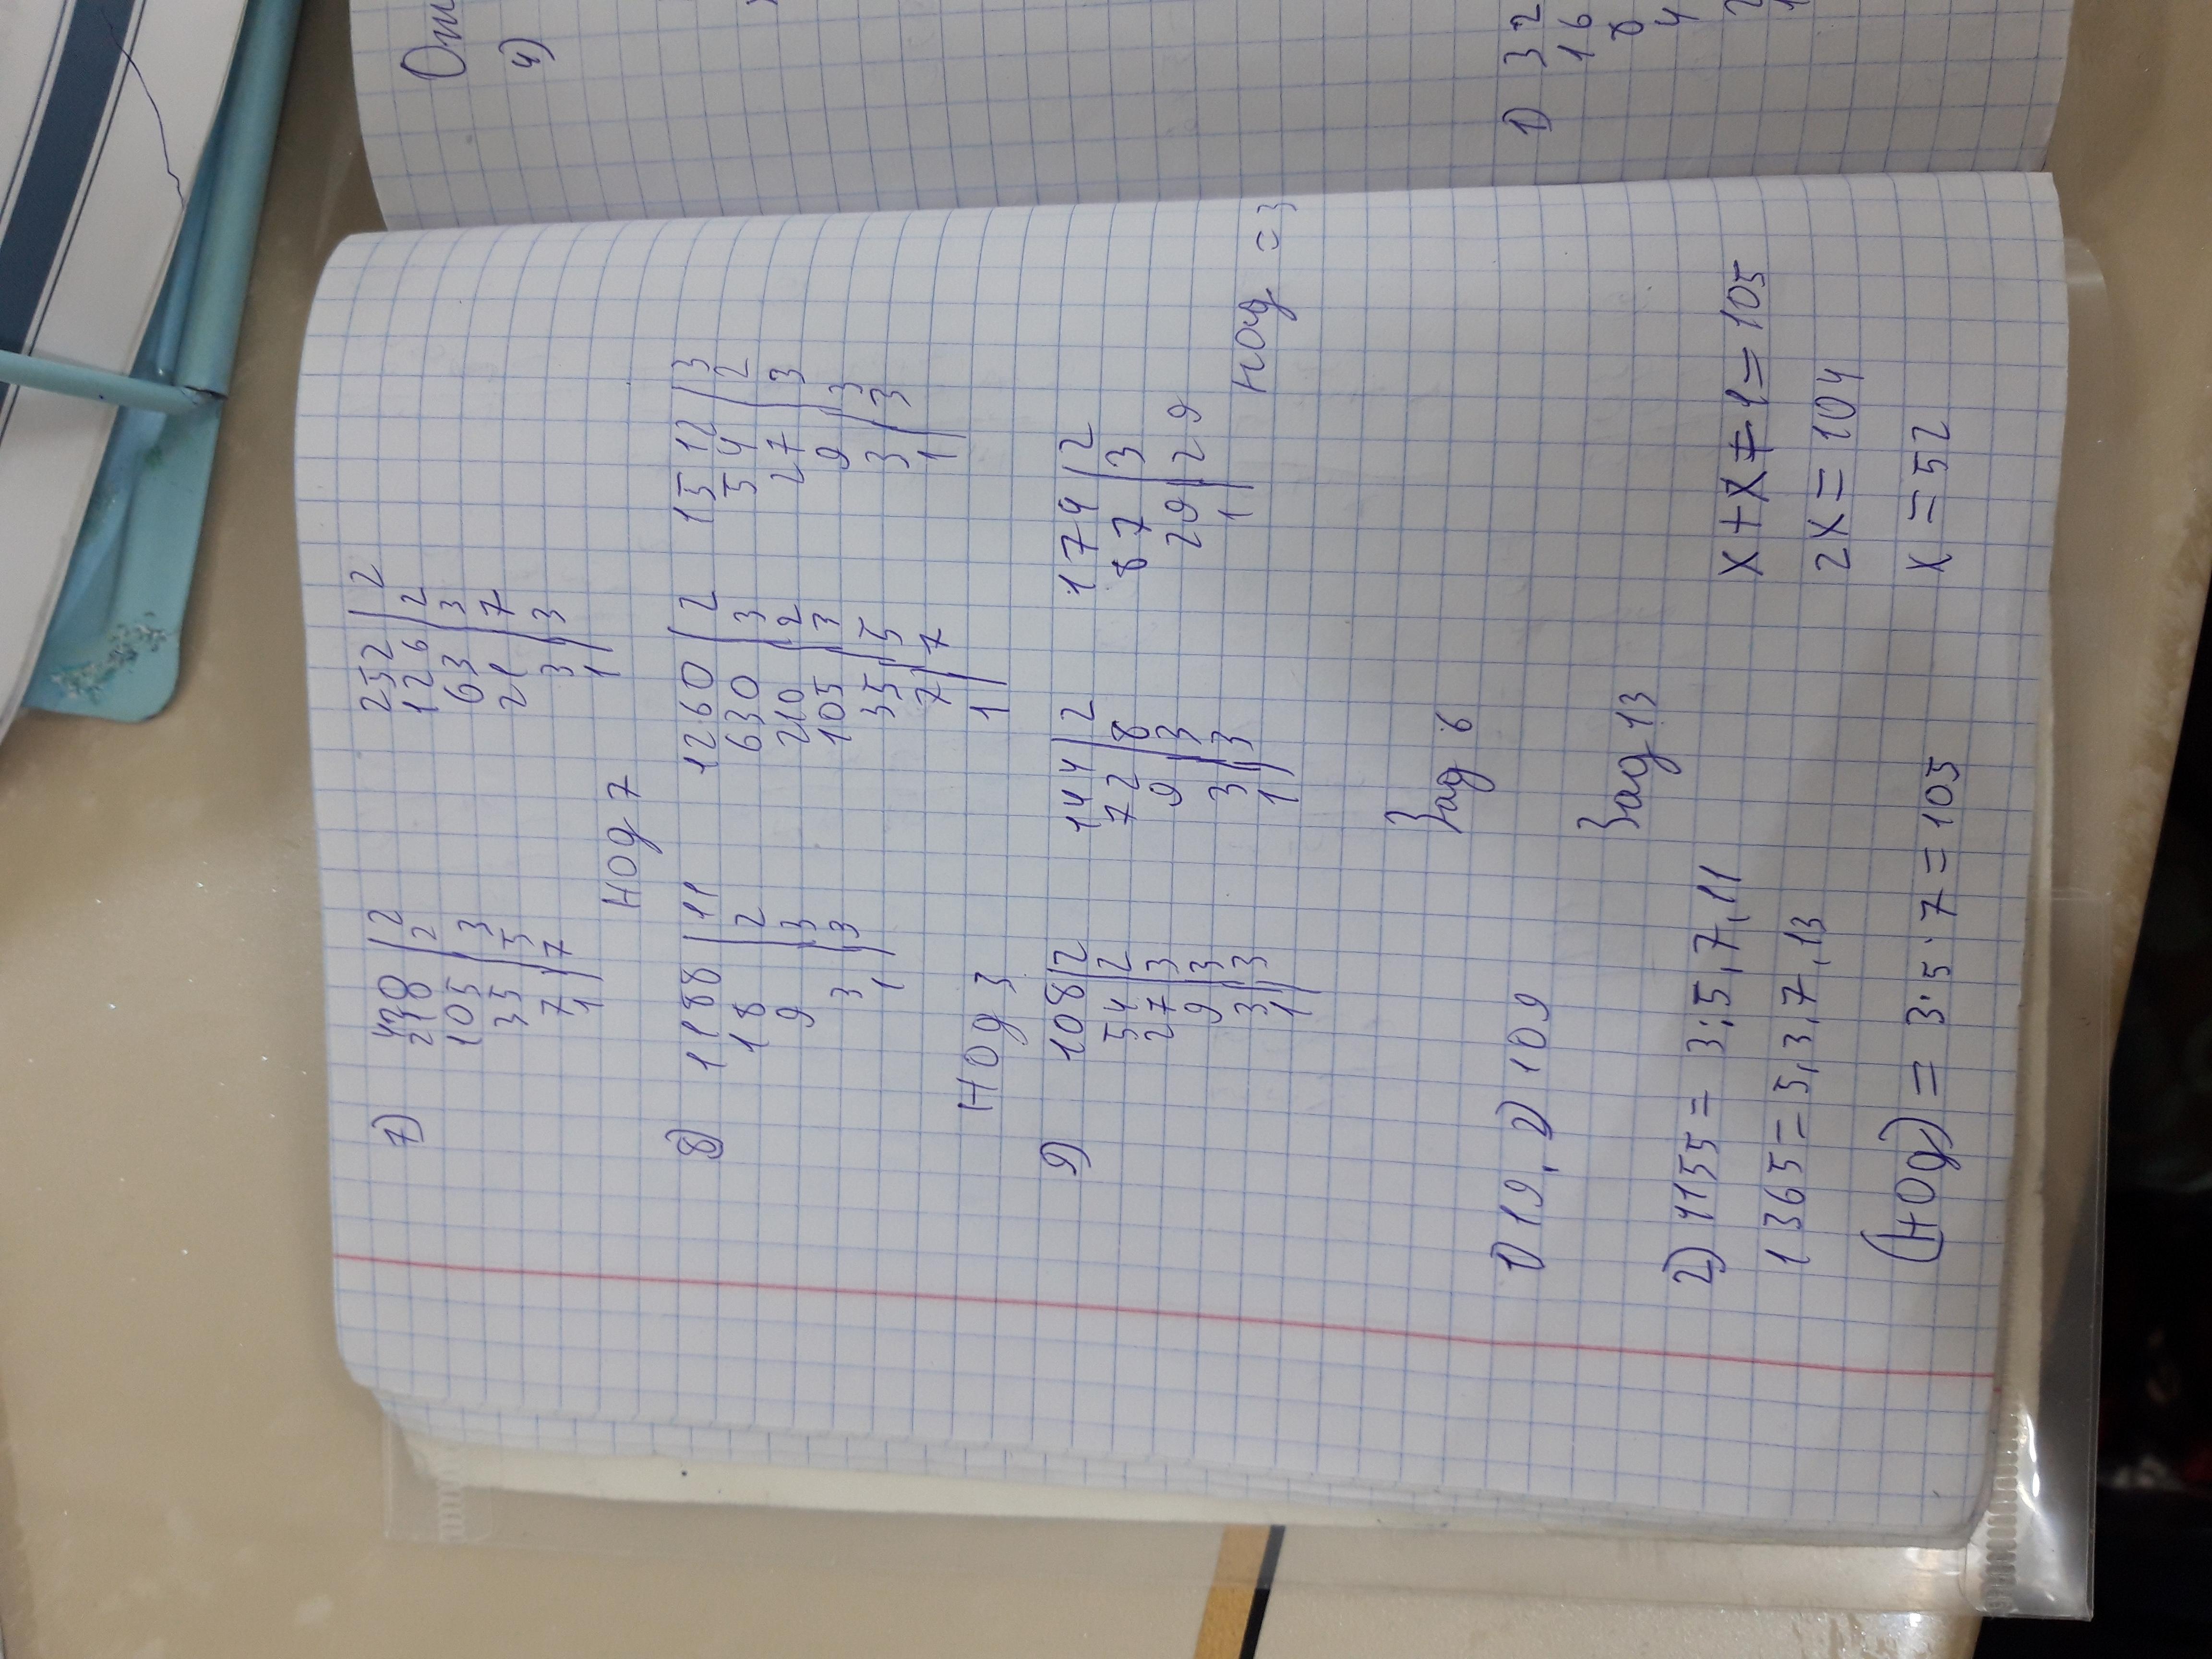 7) 420 | 2 252 | 2
210 | 2 126 | 2
105 | 3 63 | 3
35 | 5 21 | 7
7 | 7 3 | 3
1 | 1 |
НОд 7
8) 1188 | 11 1260 | 2 1512 | 3
18 | 2 630 | 3 54 | 2
9 | 3 210 | 2 27 | 3
3 | 3 105 | 3 9 | 3
1 | 35 | 5 3 | 3
7 | 7 1 |
1 |
НОд 3
9) 108 | 2 144 | 2 174 | 2
54 | 2 72 | 8 87 | 3
27 | 3 9 | 3 29 | 29
9 | 3 3 | 3 1 |
3 | 3 1 |
1 |
НОд = 3
Зад 6
1) 19, 2) 109
Зад 13
2) 1155 = 3; 5, 7, 11
1365 = 5, 3, 7, 13
(НОд) = 3·5·7 = 105
x + x + 1 = 105
2x = 104
x = 52
4)
1) 32
16
8
4
2
1